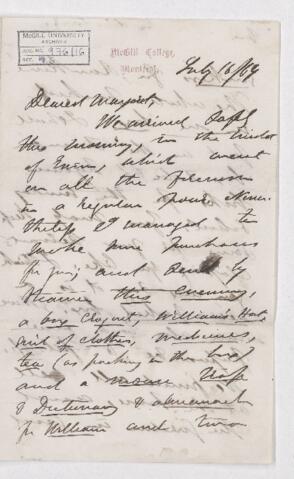 McGILL UNIVERSITY
ARCHIVES
ACC. NO. 976/16
REF. 48
McGill College,
Montreal,
July 16/64
Dearest Margaret,
We arrived safely
this morning, in the midst
of
which went
on all the forenoon
in a regular pour. Never-
theless I managed to
make some purchases
for you; and send by
Steamer this evening,
a box Croquet, William's Hat,
suit of clothes, medicines,
tea (as packing in the box)
and a mouse trap
& Dictionary & almanack
for William and two